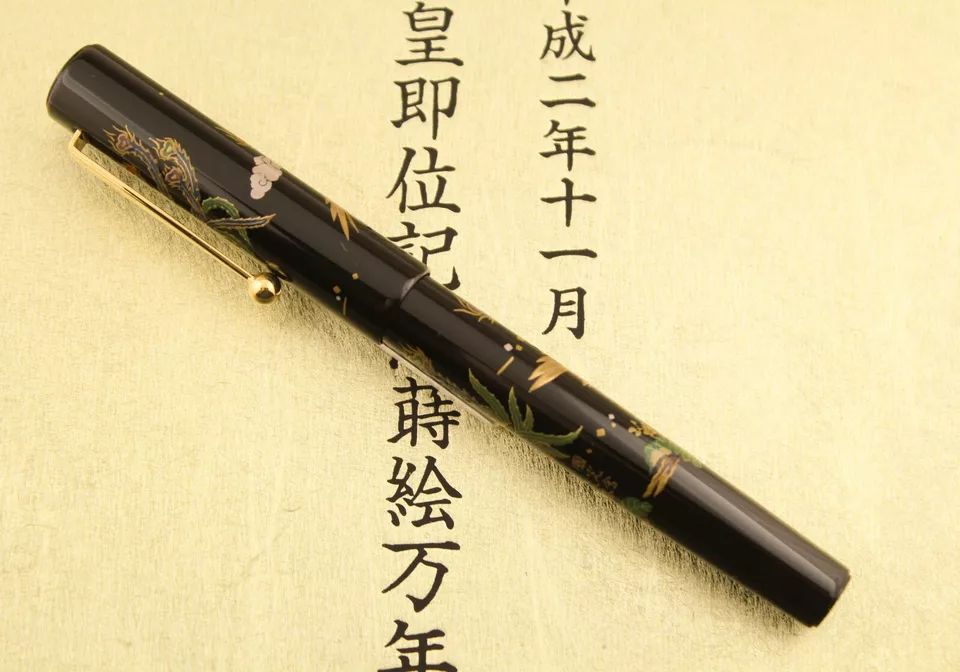 成二年十一月
皇即位記 蒔絵万年